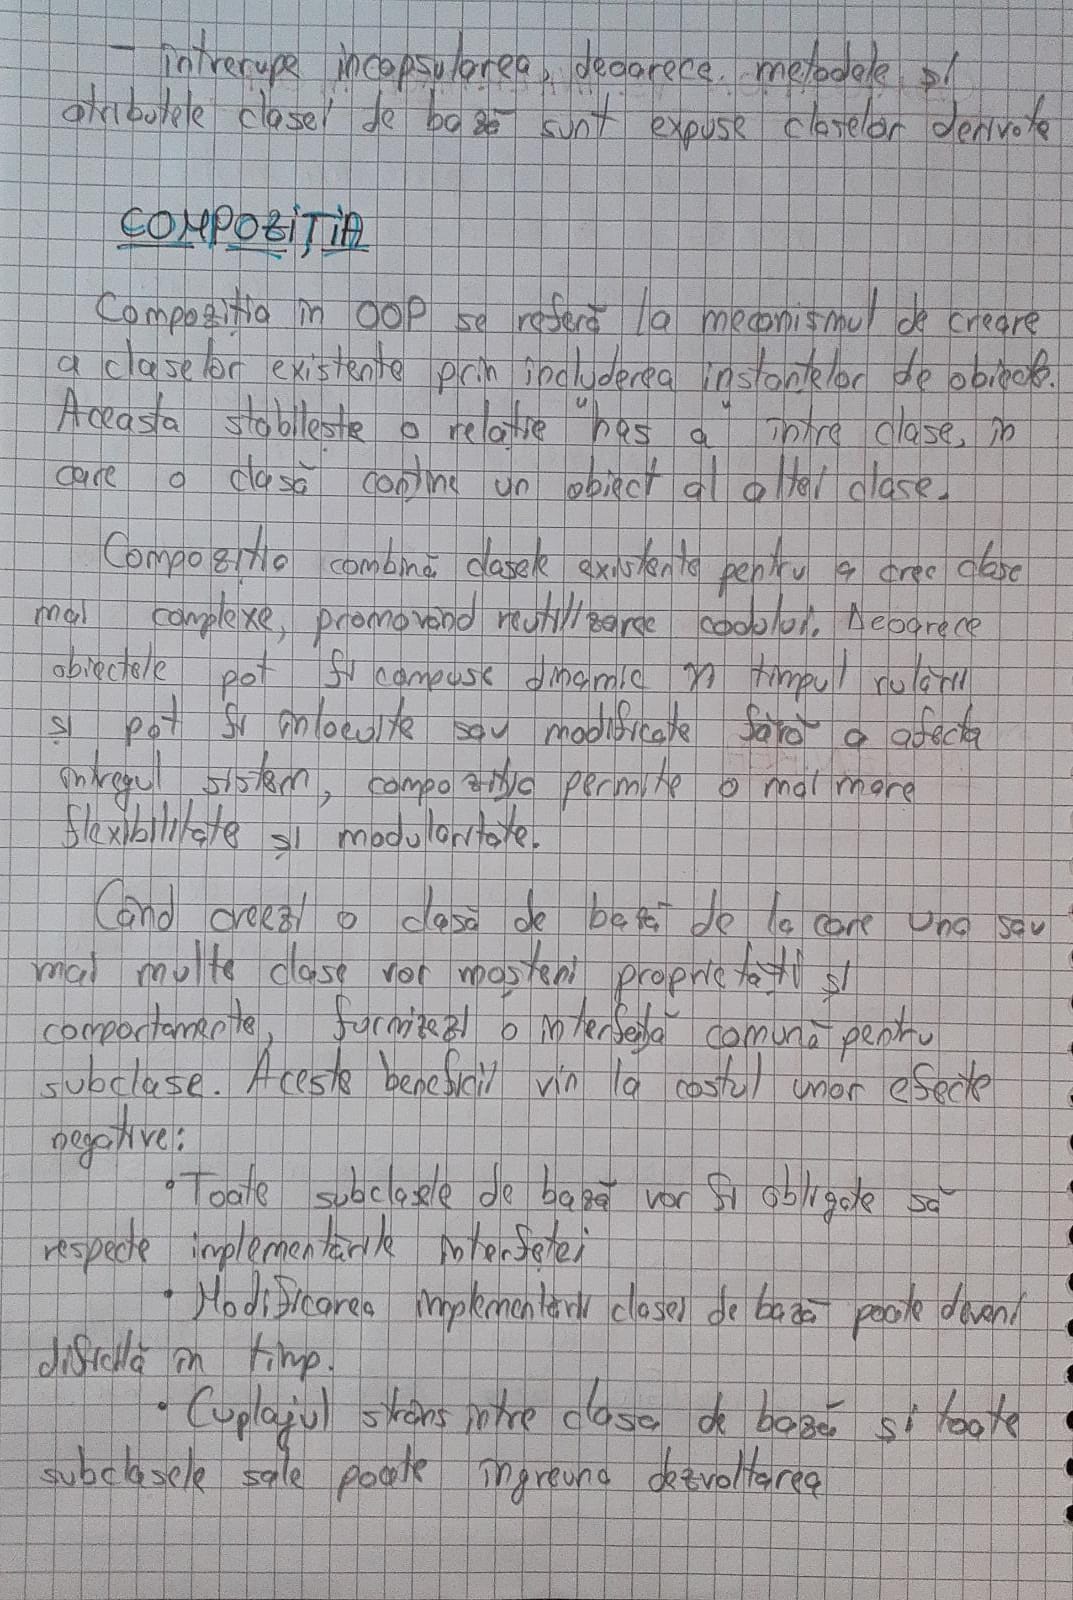 - intrerupe incapsularea, deoarece metodele și
atributele clasei de bază sunt expuse claselor derivate
COMPOZIȚIA
Compoziția in OOP se referă la mecanismul de creare
a claselor existente prin includerea instanțelor de obiecte.
Aceasta stabileste o relatie "has a" intre clase, in
care o clasă contine un obiect al altei clase.
Compozitia combină clasele existente pentru a crea clase
mai complexe, promovând reutilizarea codului. Deoarece
obiectele pot fi compuse dinamic în timpul rulării
și pot fi înlocuite sau modificate fără a afecta
întregul sistem, compoziția permite o mai mare
flexibilitate și modularitate.
Când creezi o clasă de bază de la care una sau
mai multe clase vor moșteni proprietății și
comportamente, furnizezi o interfață comună pentru
subclase. Aceste beneficii vin la costul unor efecte
negative:
• Toate subclasele de bază vor fi obligate să
respecte implementările interfeței
• Modificarea implementării clasei de bază poate deveni
dificilă în timp.
• Cuplajul strâns intre clasa de bază si toate
subclasele sale poate ingreuna dezvoltarea